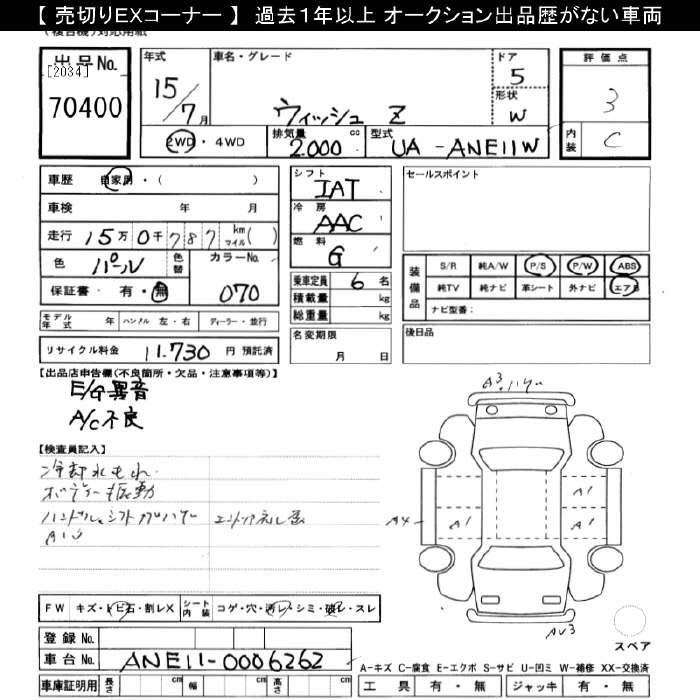 【 売切りEXコーナー 】 過去1年以上 オークション出品歴がない車両
(複合機)対応用紙
出品No. [2034] 70400
年式 15/7月
車名・グレード ウィッシュ Z
ドア 5
形状 W
2WD・4WD
排気量 2000 cc
型式 UA-ANE11W
評価点 3
内装 C
車歴 自家用・( )
車検 年 月
走行 15万0千787 km マイル( )
色 パール 色替
カラーNo. 070
保証書 有・無
シフト IAT
冷房 AAC
燃料 G
乗車定員 6名
積載量 kg
総重量 kg
名変期限 月 日
セールスポイント
装備品 S/R 純A/W P/S P/W ABS
純TV 純ナビ 革シート 外ナビ エアB
ナビ型番:
後日品
モデル年式 年 ハンドル 左・右 ディーラー・並行
リサイクル料金 11.730 円 預託済
【出品店申告欄(不良箇所・欠品・注意事項等)】
E/G異音
A/C不良
【検査員記入】
冷却水もれ
ボディー振動
ハンドル、シフトカブハゲ
A3
A4
A1
A1
A1
F W キズ・トビ石・割レX
シート内装 コゲ・穴・汚レ・シミ・破レ・スレ
スペア
登録No.
車台No. ANE11-0006262
車庫証明用 長さ cm 幅 cm 高さ cm
A-キズ C-腐食 E-エクボ S-サビ U-凹ミ W-補修 XX-交換済
工 具 有・無 ジャッキ 有・無